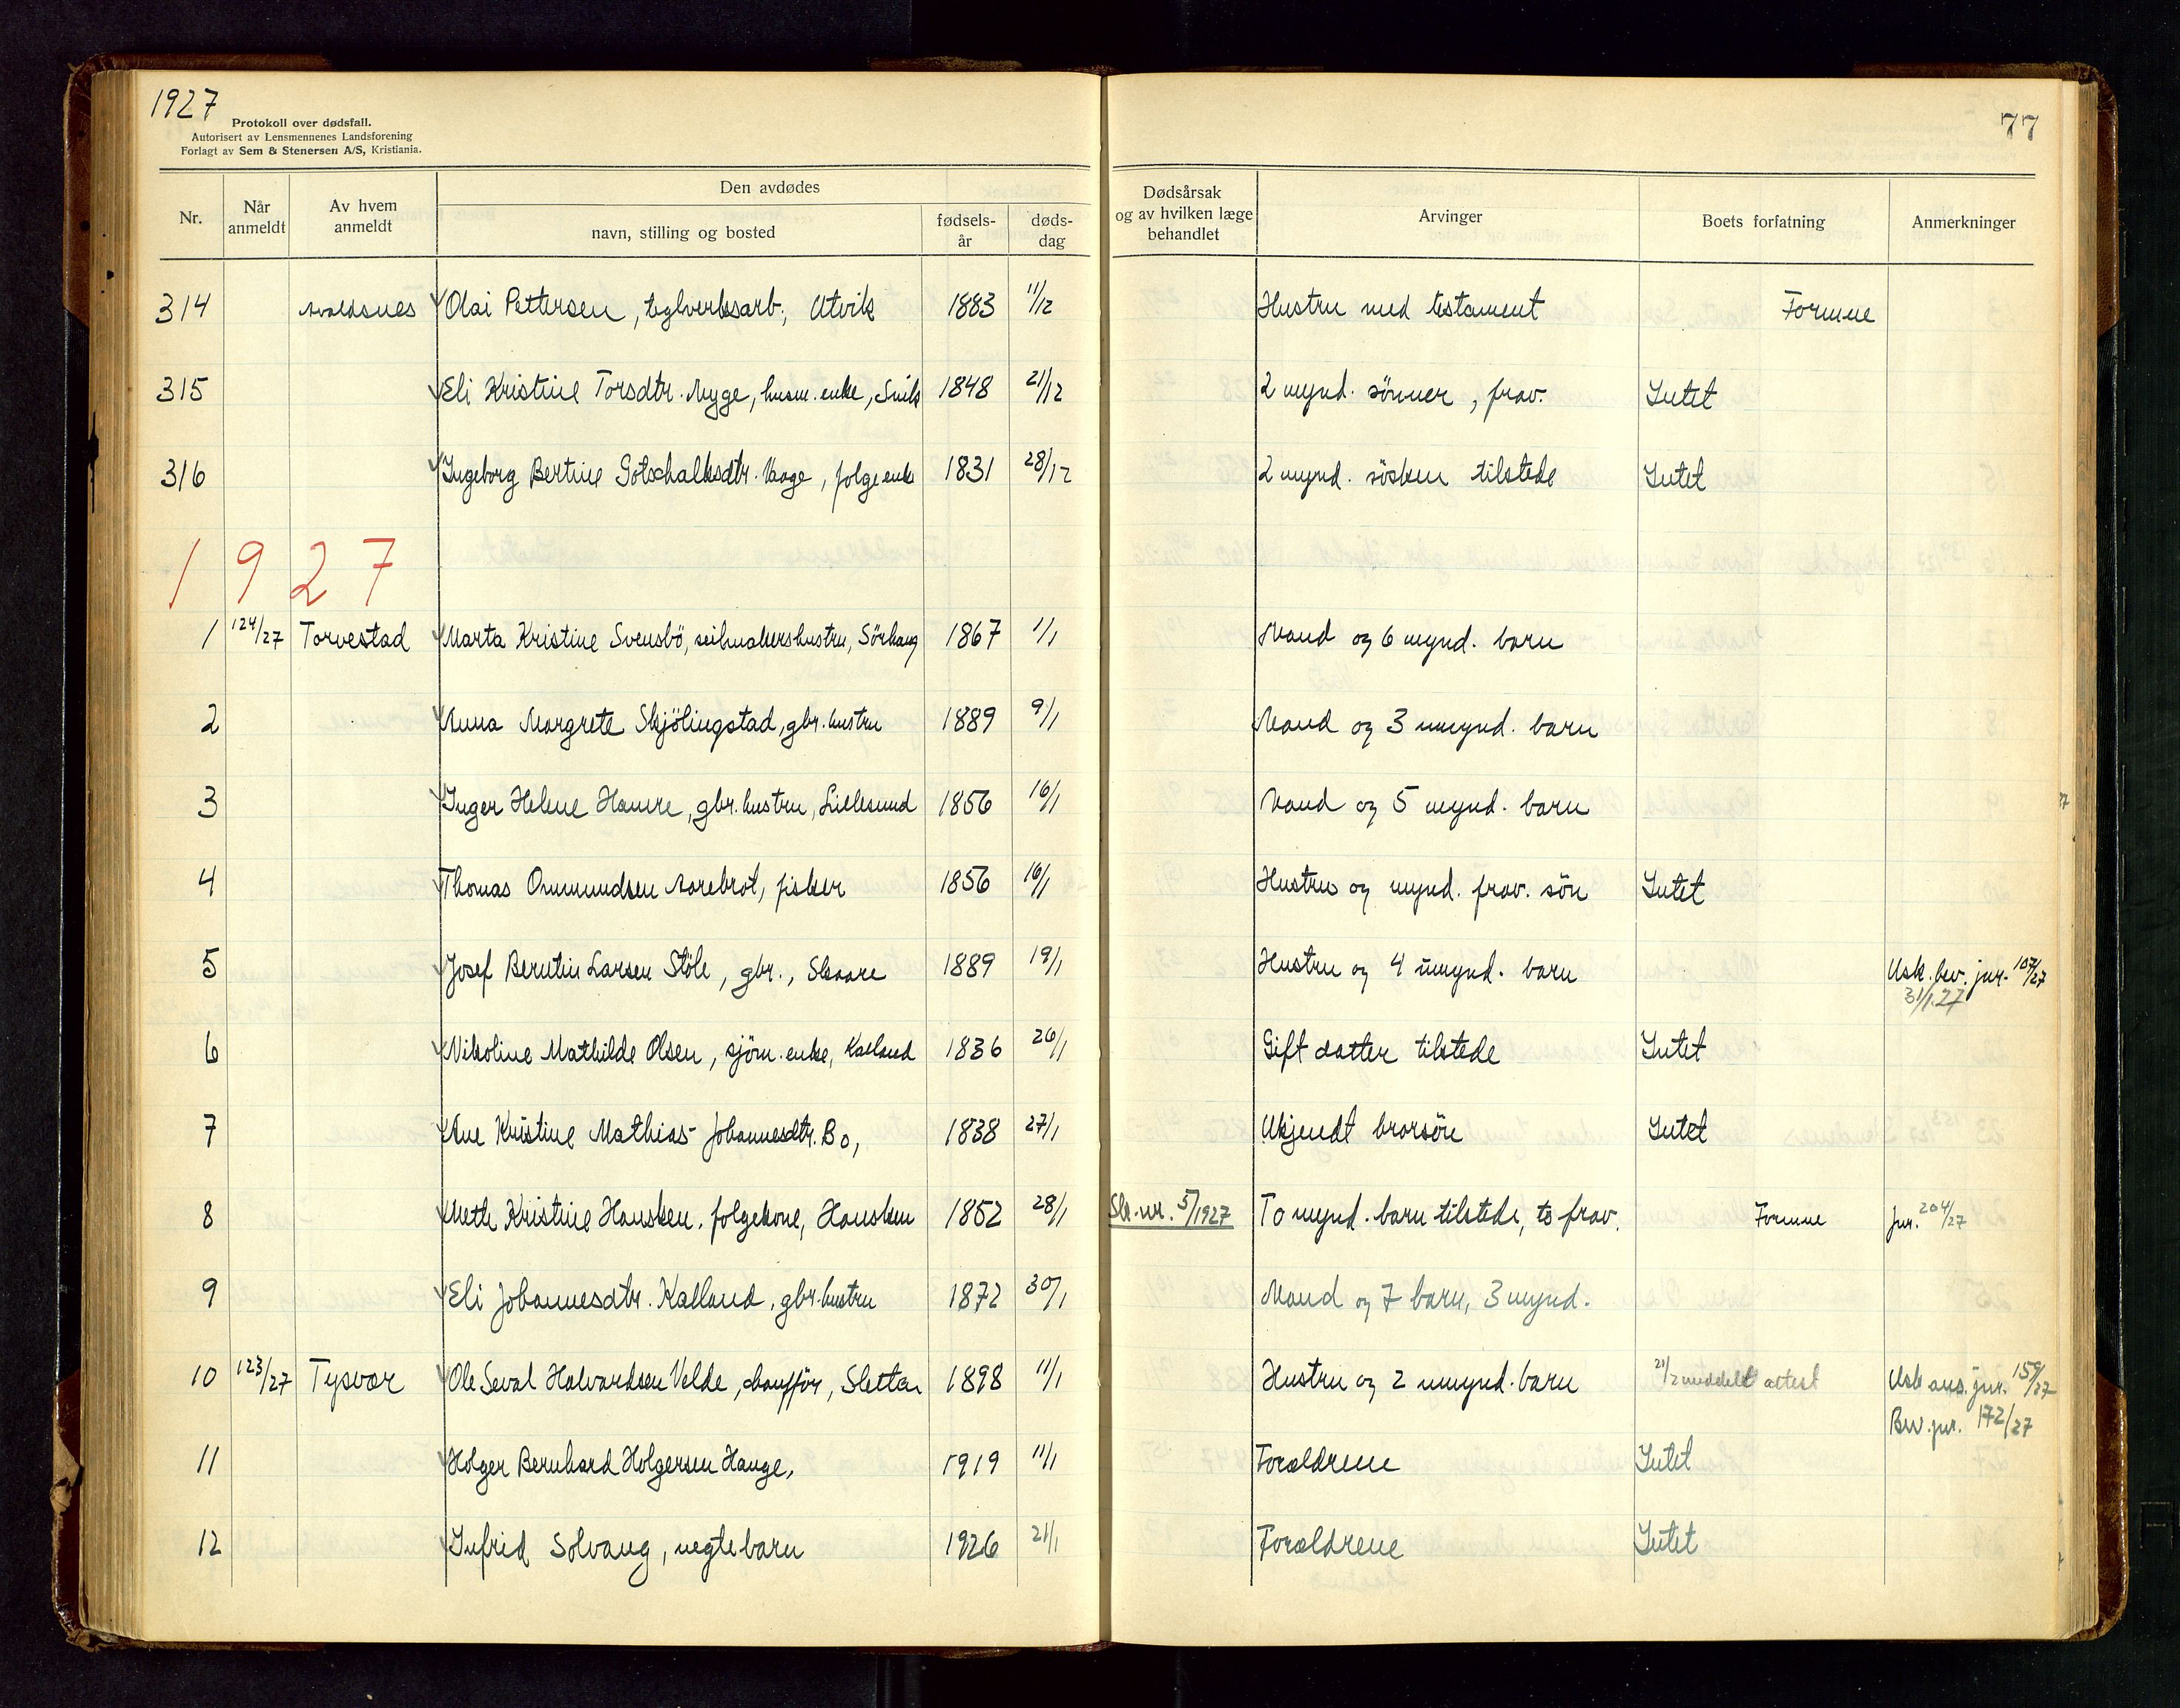 1927
Protokoll over dødsfall.
Autorisert av Lensmennenes Landsforening
Forlagt av Sem & Stenersen A/S, Kristiania.
77
Nr. Når anmeldt Av hvem anmeldt Den avdødes navn, stilling og bosted fødsels-år døds-dag Dødsårsak og av hvilken læge behandlet Arvinger Boets forfatning Anmerkninger
314 Avaldsnes Olai Pettersen, teglverksarb., Utvik 1883 11/12 Hustru med testament Formue
315 Eli Kristine Torsdtr. Myge, husm. enke, 1848 21/12 2 mynd. sönner, frav. Intet
316 Ingeborg Bertine Gotschalksdtr. Vaage, folgeenke 1831 28/12 2 mynd. sösken tilstede Intet
1927
1 124/27 Torvestad Marta Kristine Svensbö, seilmakershustru, Sörhaug 1867 1/1 Mand og 6 mynd. barn
2 Anna Margrete Skjölingstad, gbr. hustru 1889 9/1 Mand og 3 umynd. barn
3 Inger Helene Hamre, gbr. hustru, Lillesund 1856 16/1 Mand og 5 mynd. barn
4 Thomas Ommundsen Aarebrot, fisker 1856 16/1 Hustru og mynd. frav. sön Intet
5 Josef Berntin Larsen Stöle, gbr., Skaare 1889 19/1 Hustru og 4 umynd. barn Usk. bev. jur. 107/27
31/1.27
6 Nikoline Mathilde Olsen, sjöm. enke, Kalland 1836 26/1 Gift datter tilstede Intet
7 Ane Kristine Mathias Johannesdtr. Bo, 1838 27/1 Ukjendt brorsön Intet
8 Mette Kristine Hausken, folgekone, Hausken 1852 28/1 Sk. nr. 5/1927 To mynd. barn tilstede, to frav. Formue jur. 204/27
9 Eli Johannesdtr. Kalland, gbr. hustru 1872 30/1 Mand og 7 barn, 3 mynd.
10 123/27 Tysvær Ole Seval Halvardsen Velde, chaufför, Sletten 1898 11/1 Hustru og 2 umynd. barn 21/2 meddelt attest Usk ans. jur. 159/27
Bev. jur. 172/27
11 Holger Bernhard Holgersen Hauge, 1919 11/1 Forældrene Intet
12 Infrid Solvang, uegte barn 1926 21/1 Forældrene Intet